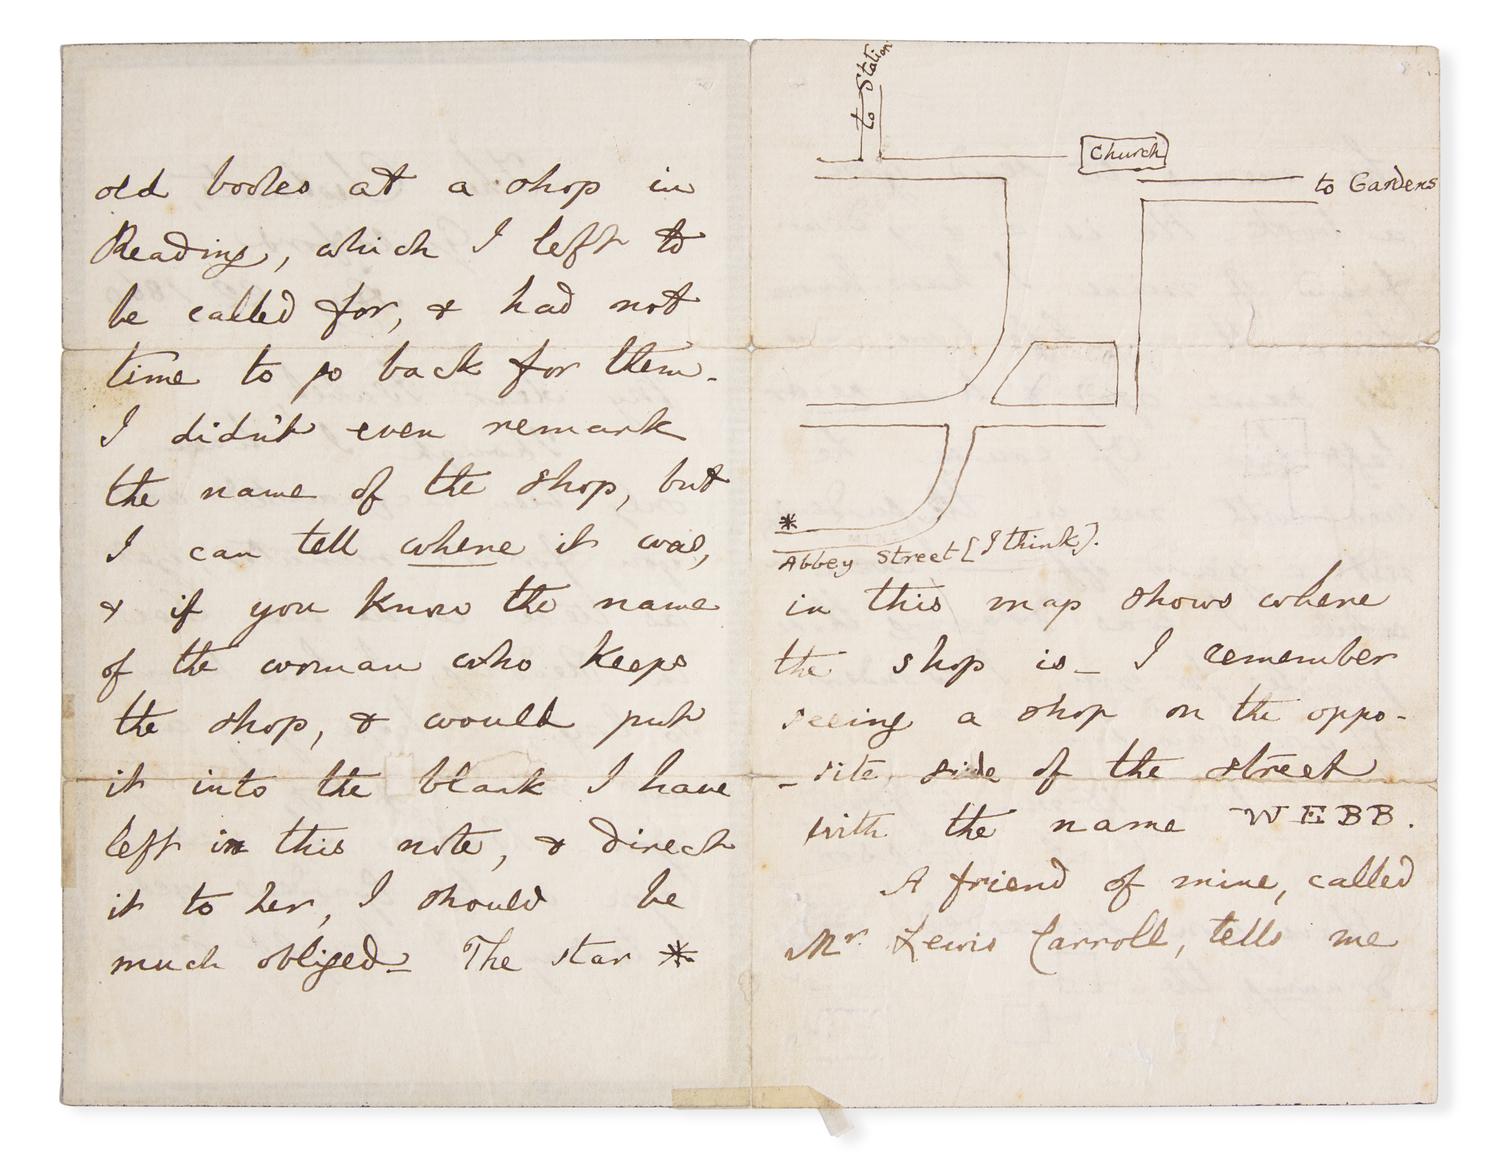 old books at a shop in
Reading, which I left to
be called for, & had not
time to go back for them.
I didn't even remark
the name of the shop, but
I can tell where it was,
& if you know the name
of the woman who keeps
the shop, & would put
it into the blank I have
left in this note, & direct
it to her, I should be
much obliged_ The star *
to Station
Church
to Gardens
*
Abbey Street [I think].
in this map shows where
the shop is_ I remember
seeing a shop on the oppo-
-site side of the street
with the name WEBB.
A friend of mine, called
Mr. Lewis Carroll, tells me